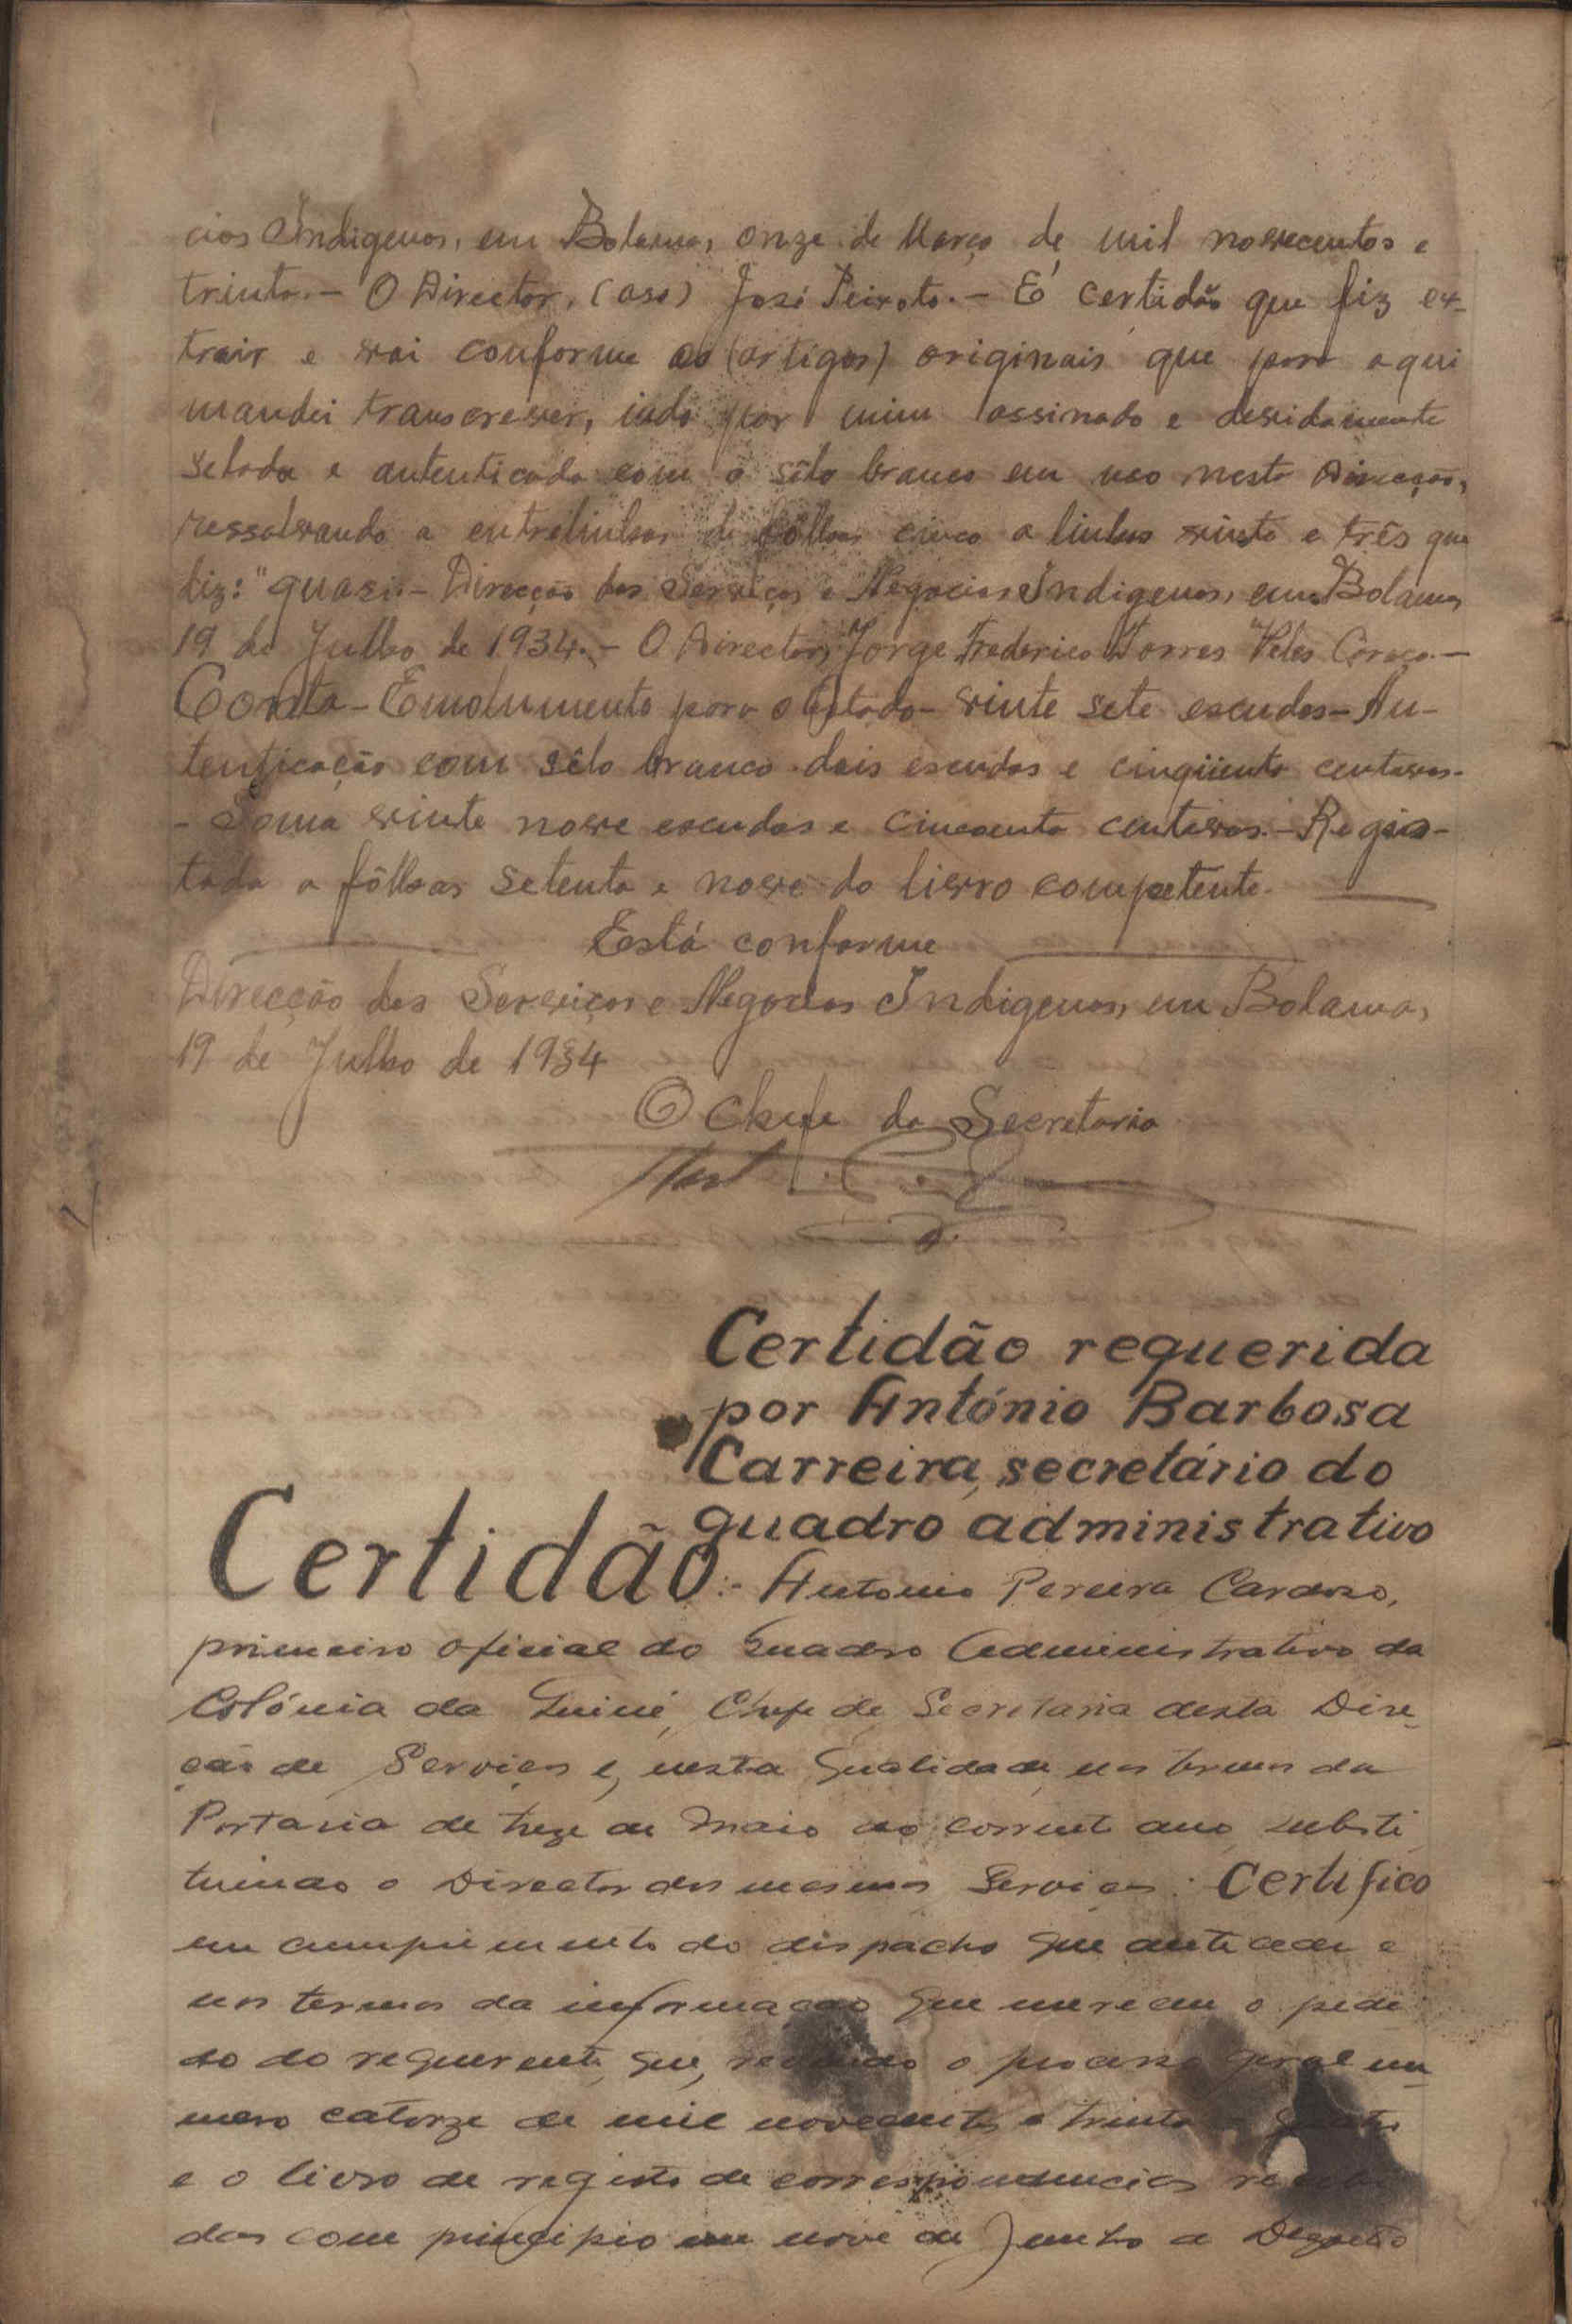 cios Indigenas, em Bolama, onze de Março de mil novecentos e
trinta.- O Director, (ass) José Peixoto.- É certidão que fiz ex-
trair e vai conforme os (artigos) originais que para aqui
mandei transcrever, indo por mim assinado e devidamente
selada e autenticada com o sêlo branco em uso nesta Direcção,
ressalvando a entrelinhas de fôlhas cinco a linhas vinte e três que
diz: "quasi.- Direcção dos Serviços e Negocios Indigenas, em Bolama,
19 de Julho de 1934.- O Director, Jorge Frederico Torres Veles Caroço.-
Conta - Emolumento para o Estado - vinte sete escudos - Au-
tenticação com sêlo branco dois escudos e cinqüenta centavos.-
- Soma vinte nove escudos e cincoenta centavos.- Regis-
tada a fôlhas setenta e nove do livro competente.
Está conforme
Direcção dos Serviços e Negocios Indigenas, em Bolama,
19 de Julho de 1934
O Chefe da Secretaria
Certidão requerida
por António Barbosa
Carreira, secretário do
quadro administrativo
Certidão:- Antonio Pereira Cardoso,
primeiro oficial do quadro Administrativo da
Colónia da Guiné, Chefe de Secretaria desta Dire-
ção de Serviços e, nesta qualidade, nos termos da
Portaria de treze de Maio do corrente ano substi
tuindo o Director dos mesmos Serviços: Certifico
em cumprimento do despacho que antecede e
nos termos da informação que mereceu o pedi
do do requerente, que, revendo o processo geral nu-
mero catorze de mil novecentos e trinta e quatro
e o livro de registo de correspondencias recebi
das com principio em nove de Junho a